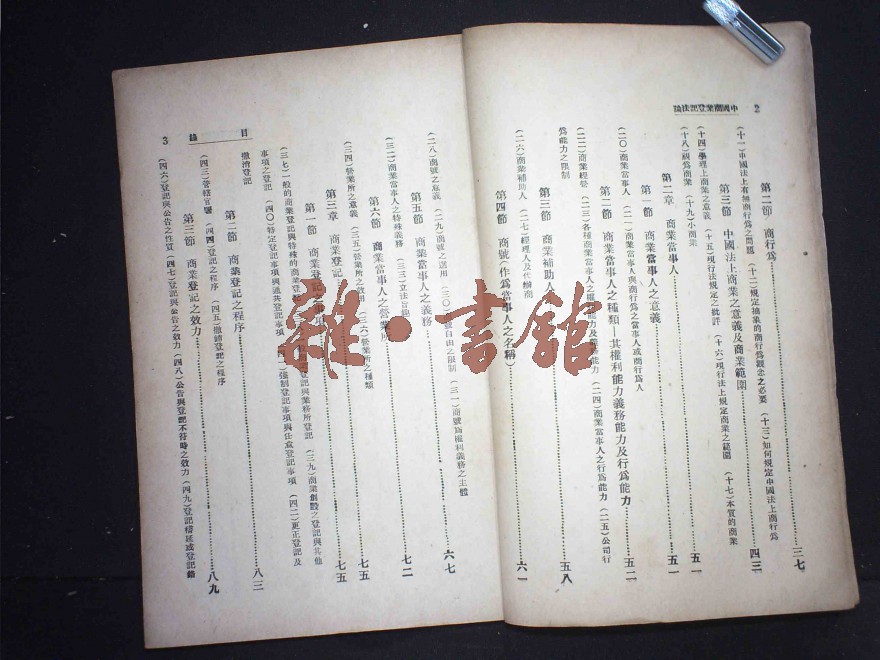 2 中國商業登記法論
第二節 商行爲 三七
(十一)中國法上有無商行爲之問題 (十二)規定抽象的商行爲觀念之必要 (十三)如何規定中國法上商行爲
第三節 中國法上商業之意義及商業範圍 四三
(十四)學理上商業之意義 (十五)現行法規定之批評 (十六)現行法上規定商業之範圍 (十七)本質的商業
(十八)視爲商業 (十九)小商業
第二章 商業當事人 五一
第一節 商業當事人之意義 五一
(二〇)商業當事人 (二一)商業當事人與商行爲之當事人或商行爲人
第二節 商業當事人之種類—其權利能力義務能力及行爲能力 五二
(二二)商業經營 (二三)各種商業當事人之權利能力及義務能力 (二四)商業當事人之行爲能力 (二五)公司行
爲能力之限制
第三節 商業補助人 五八
(二六)商業補助人 (二七)經理人及代辦商
第四節 商號(作爲當事人之名稱) 六一
(二八)商號之意義 (二九)商號之選用 (三〇)自由之限制 (三一)商號爲權利義務之主體
第五節 商業當事人之義務 六七
(三二)商業當事人之特殊義務 (三三)立法旨趣
第六節 商業當事人之營業所 七二
(三四)營業所之意義 (三五)營業所之效用 (三六)營業所之種類 七五
第三章 商業登記 七五
第一節 商業登記之事項
(三七)一般的商業登記與特殊的商業登記 登記與業務所登記 (三九)商業創設之登記與其他
事項之登記 (四〇)特定登記事項與通共登記事項 (四一)強制登記事項與任意登記事項 (四二)更正登記及
撤消登記
第二節 商業登記之程序 八三
(四三)管轄官署 (四四)登記之程序 (四五)撤消登記之程序
第三節 商業登記之效力 八九
(四六)登記與公告之性質 (四七)登記與公告之效力 (四八)公告與登記不符時之效力 (四九)登記稽延或登記錯
目錄 3
雜·書館